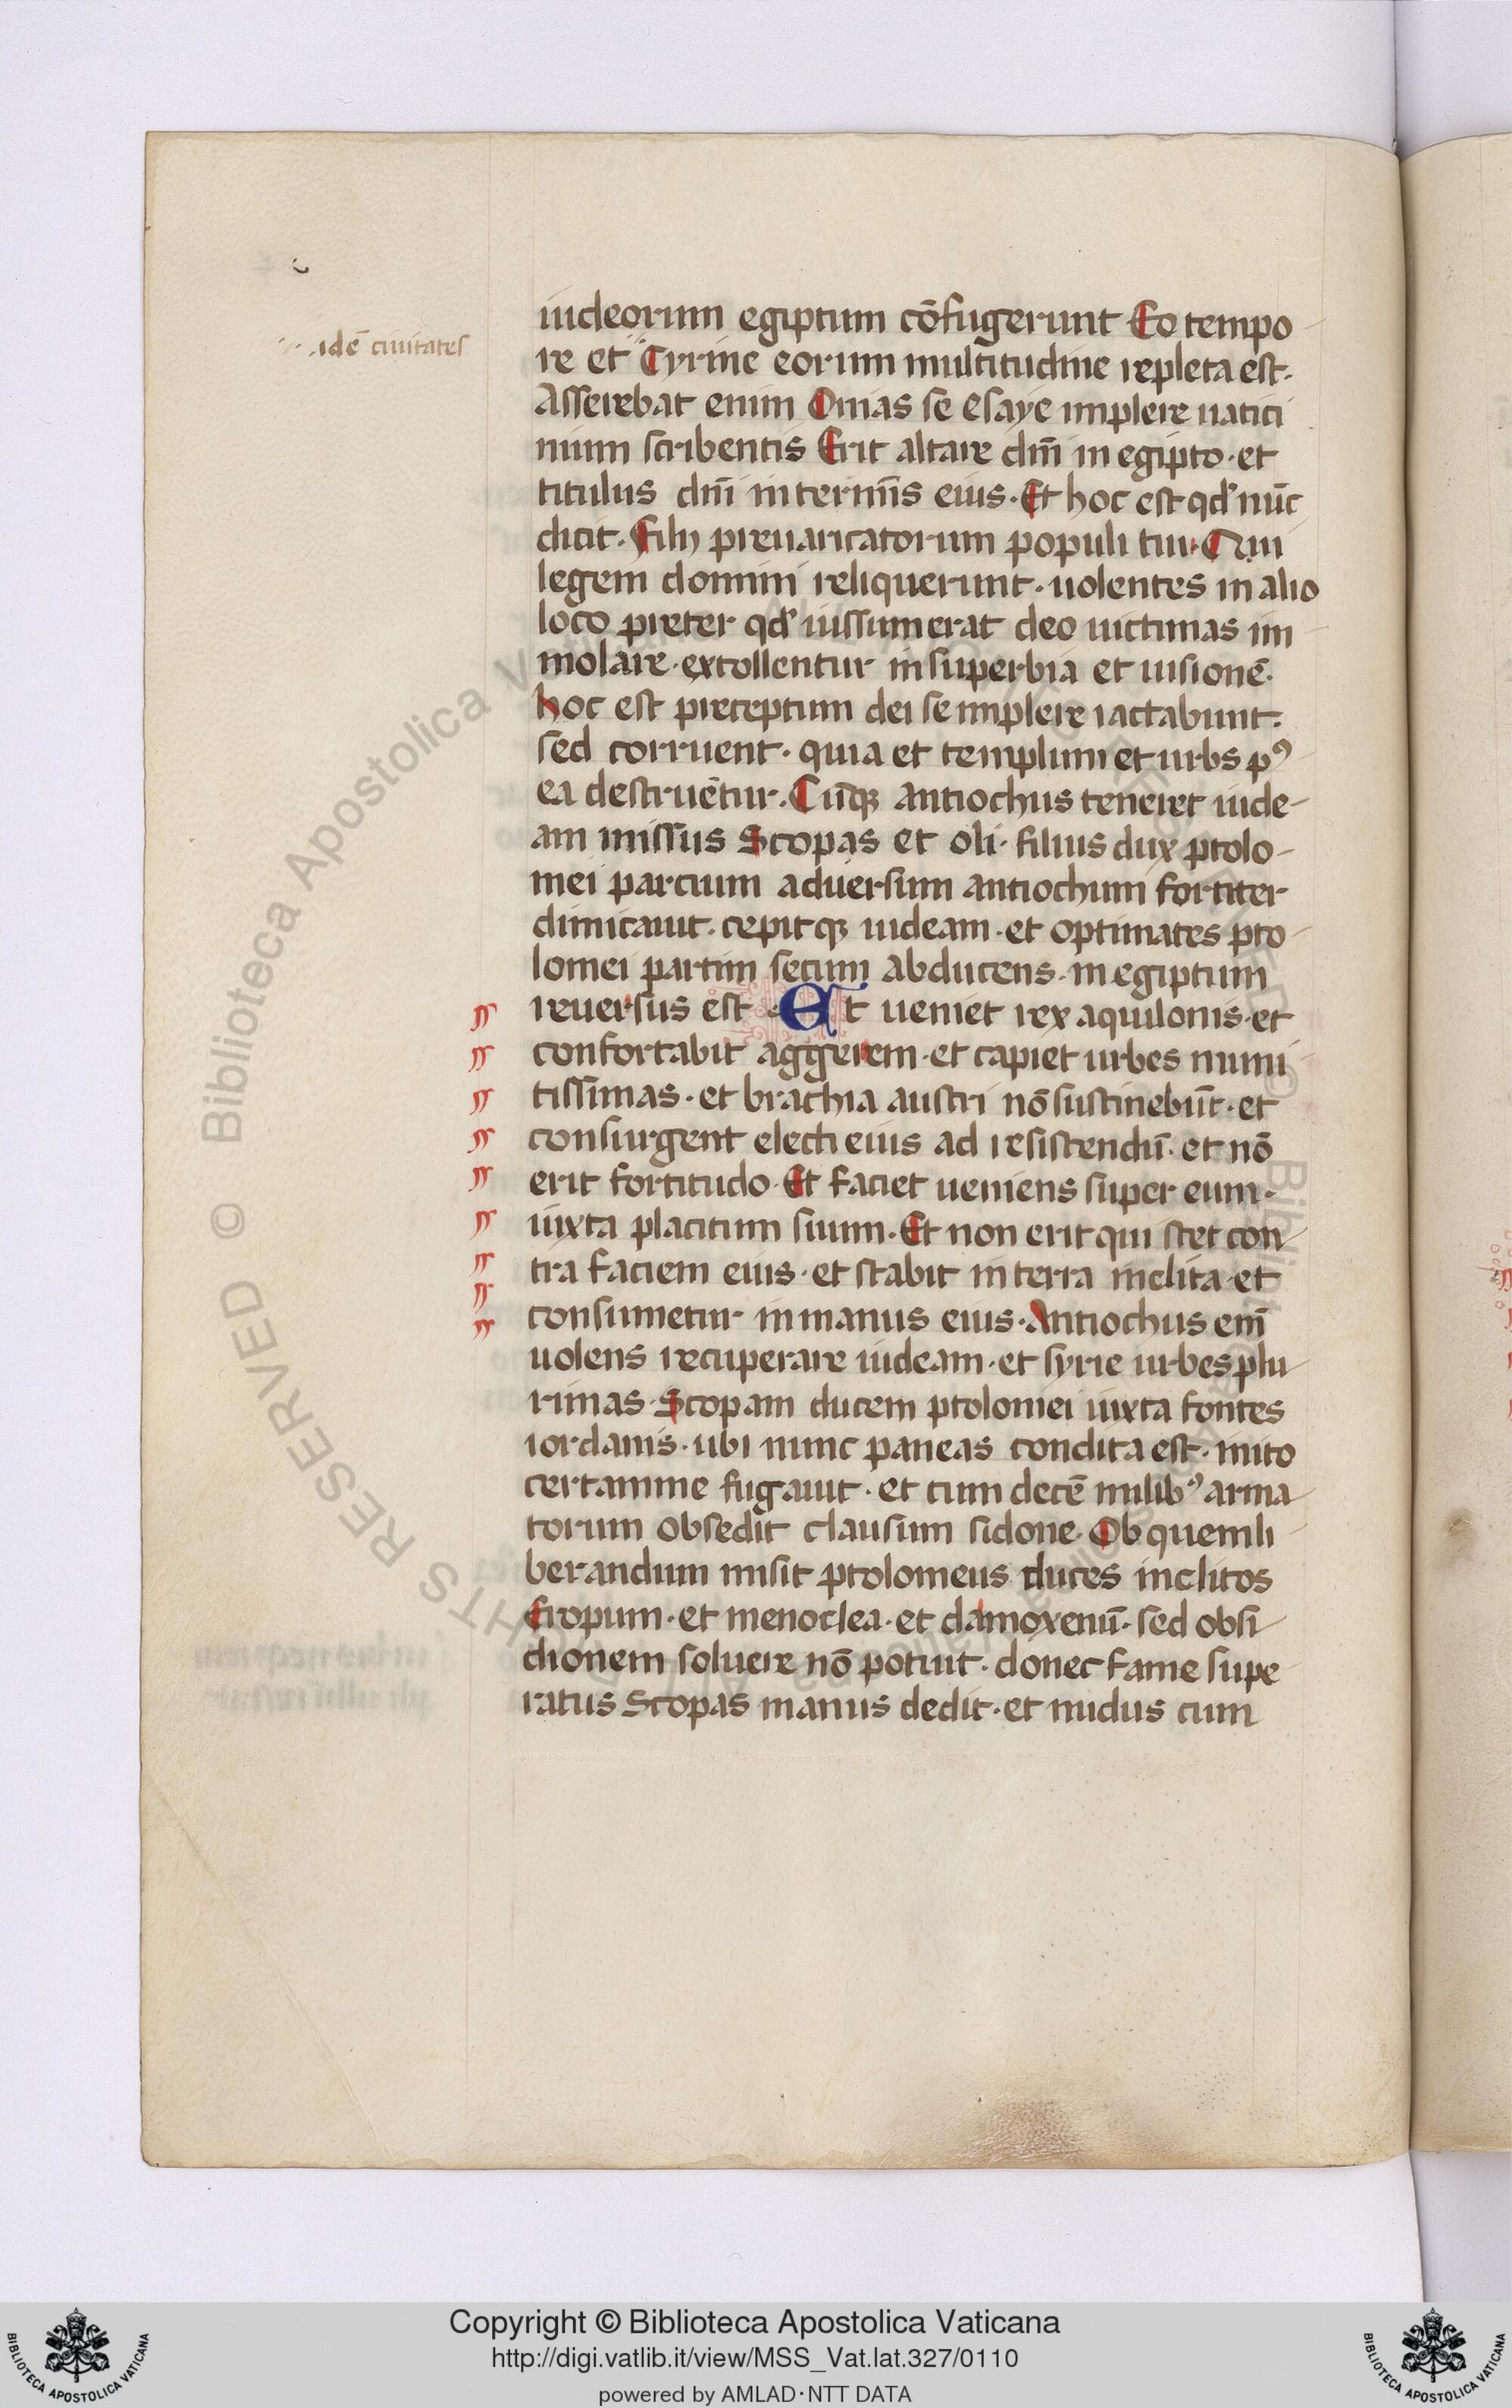 iudeorum egiptum cōfugerunt Eo tempo
..idē ciuitates
re et Cyrine eorum multitudine repleta est.
Asserebat enim Onias se esaye implere uatici
nium scribentis Erit altare dn̄i in egipto · et
titulus dn̄i in termīs eius · Et hoc est qd' nūc
dicit · Filii preuaricatorum populi tui · Qui
legem domini reliquerunt · uolentes in alio
loco preter qd' iussum erat deo uictimas im
molare · extollentur in superbia et uisionē ·
hoc est preceptum dei se implere iactabunt ·
sed corruent · quia et templum et urbs p᾽
ea destruētur · Cūqꝫ antiochus teneret iude-
am missus Scopas et oli · filius dux ptolo-
mei parcium aduersum antiochum fortiter
dimicauit · cepitqꝫ iudeam · et optimates pto
lomei partim secum abducens · in egiptum
reuersus est · Et ueniet rex aquilonis · et
confortabit aggerem · et capiet urbes muni
tissimas · et brachia austri nō sustinebūt · et
consurgent electi eius ad resistendū · et nō
erit fortitudo · Et faciet ueniens super eum ·
iuxta placitum suum · Et non erit qui stet con
tra faciem eius · et stabit in terra inclita · et
consumetur in manus eius · Antiochus enī
uolens recuperare iudeam · et syrie urbes plu
rimas · Scopam ducem ptolomei iuxta fontes
iordanis · ubi nunc paneas condita est · inito
certamine fugauit · et cum decē milib᾽ arma
torum obsedit clausum sidone · Ob quem li
berandum misit ptolomeus duces inclitos
Eropum · et menoclea · et damoxenū · sed obsi
dionem soluere nō potuit · donec fame supe
ratus Scopas manus dedit · et nudus cum
© Biblioteca Apostolica Vaticana
Copyright © Biblioteca Apostolica Vaticana
http://digi.vatlib.it/view/MSS_Vat.lat.327/0110
powered by AMLAD·NTT DATA
BIBLIOTECA APOSTOLICA VATICANA
BIBLIOTECA APOSTOLICA VATICANA